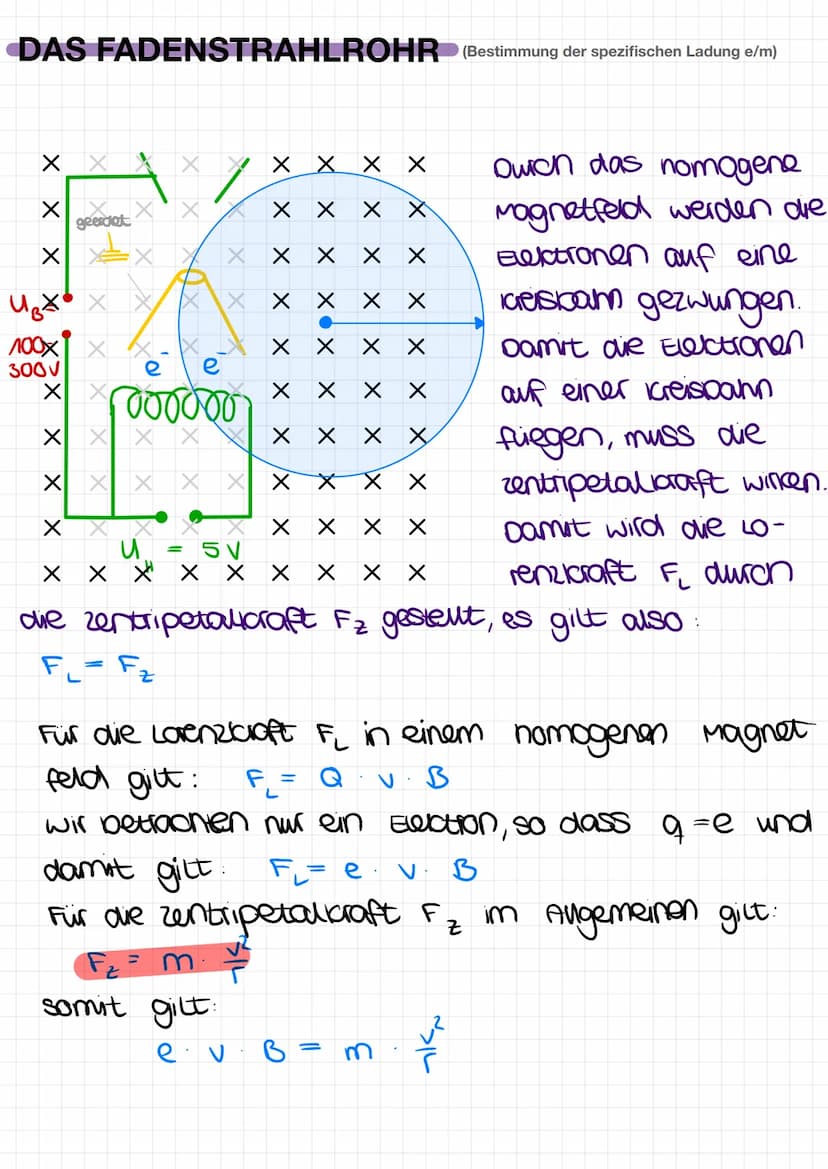 DAS FADENSTRAHLROHR (Bestimmung der spezifischen Ladung e/m)
Durch das homogene
Magnetfeld werden die
Elektronen auf eine
Kreisbahn gezwungen.
Damit die Elektronen
auf einer Kreisbahn
fliegen, muss die
Zentripetalkraft wirken.
Damit wird die Lo-
renzkraft F_L durch
die Zentripetalkraft F_Z gestellt, es gilt also:
geerdet
U_B =
100-
300V
e⁻ e⁻
U_H = 5V
F_L = F_Z
Für die Lorenzkraft F_L in einem homogenen Magnet
feld gilt: F_L = Q · v · B
Wir betrachten nur ein Elektron, so dass q = e und
damit gilt: F_L = e · v · B
Für die Zentripetalkraft F_Z im Allgemeinen gilt:
F_Z = m · v²/r
somit gilt:
e · v · B = m · v²/r